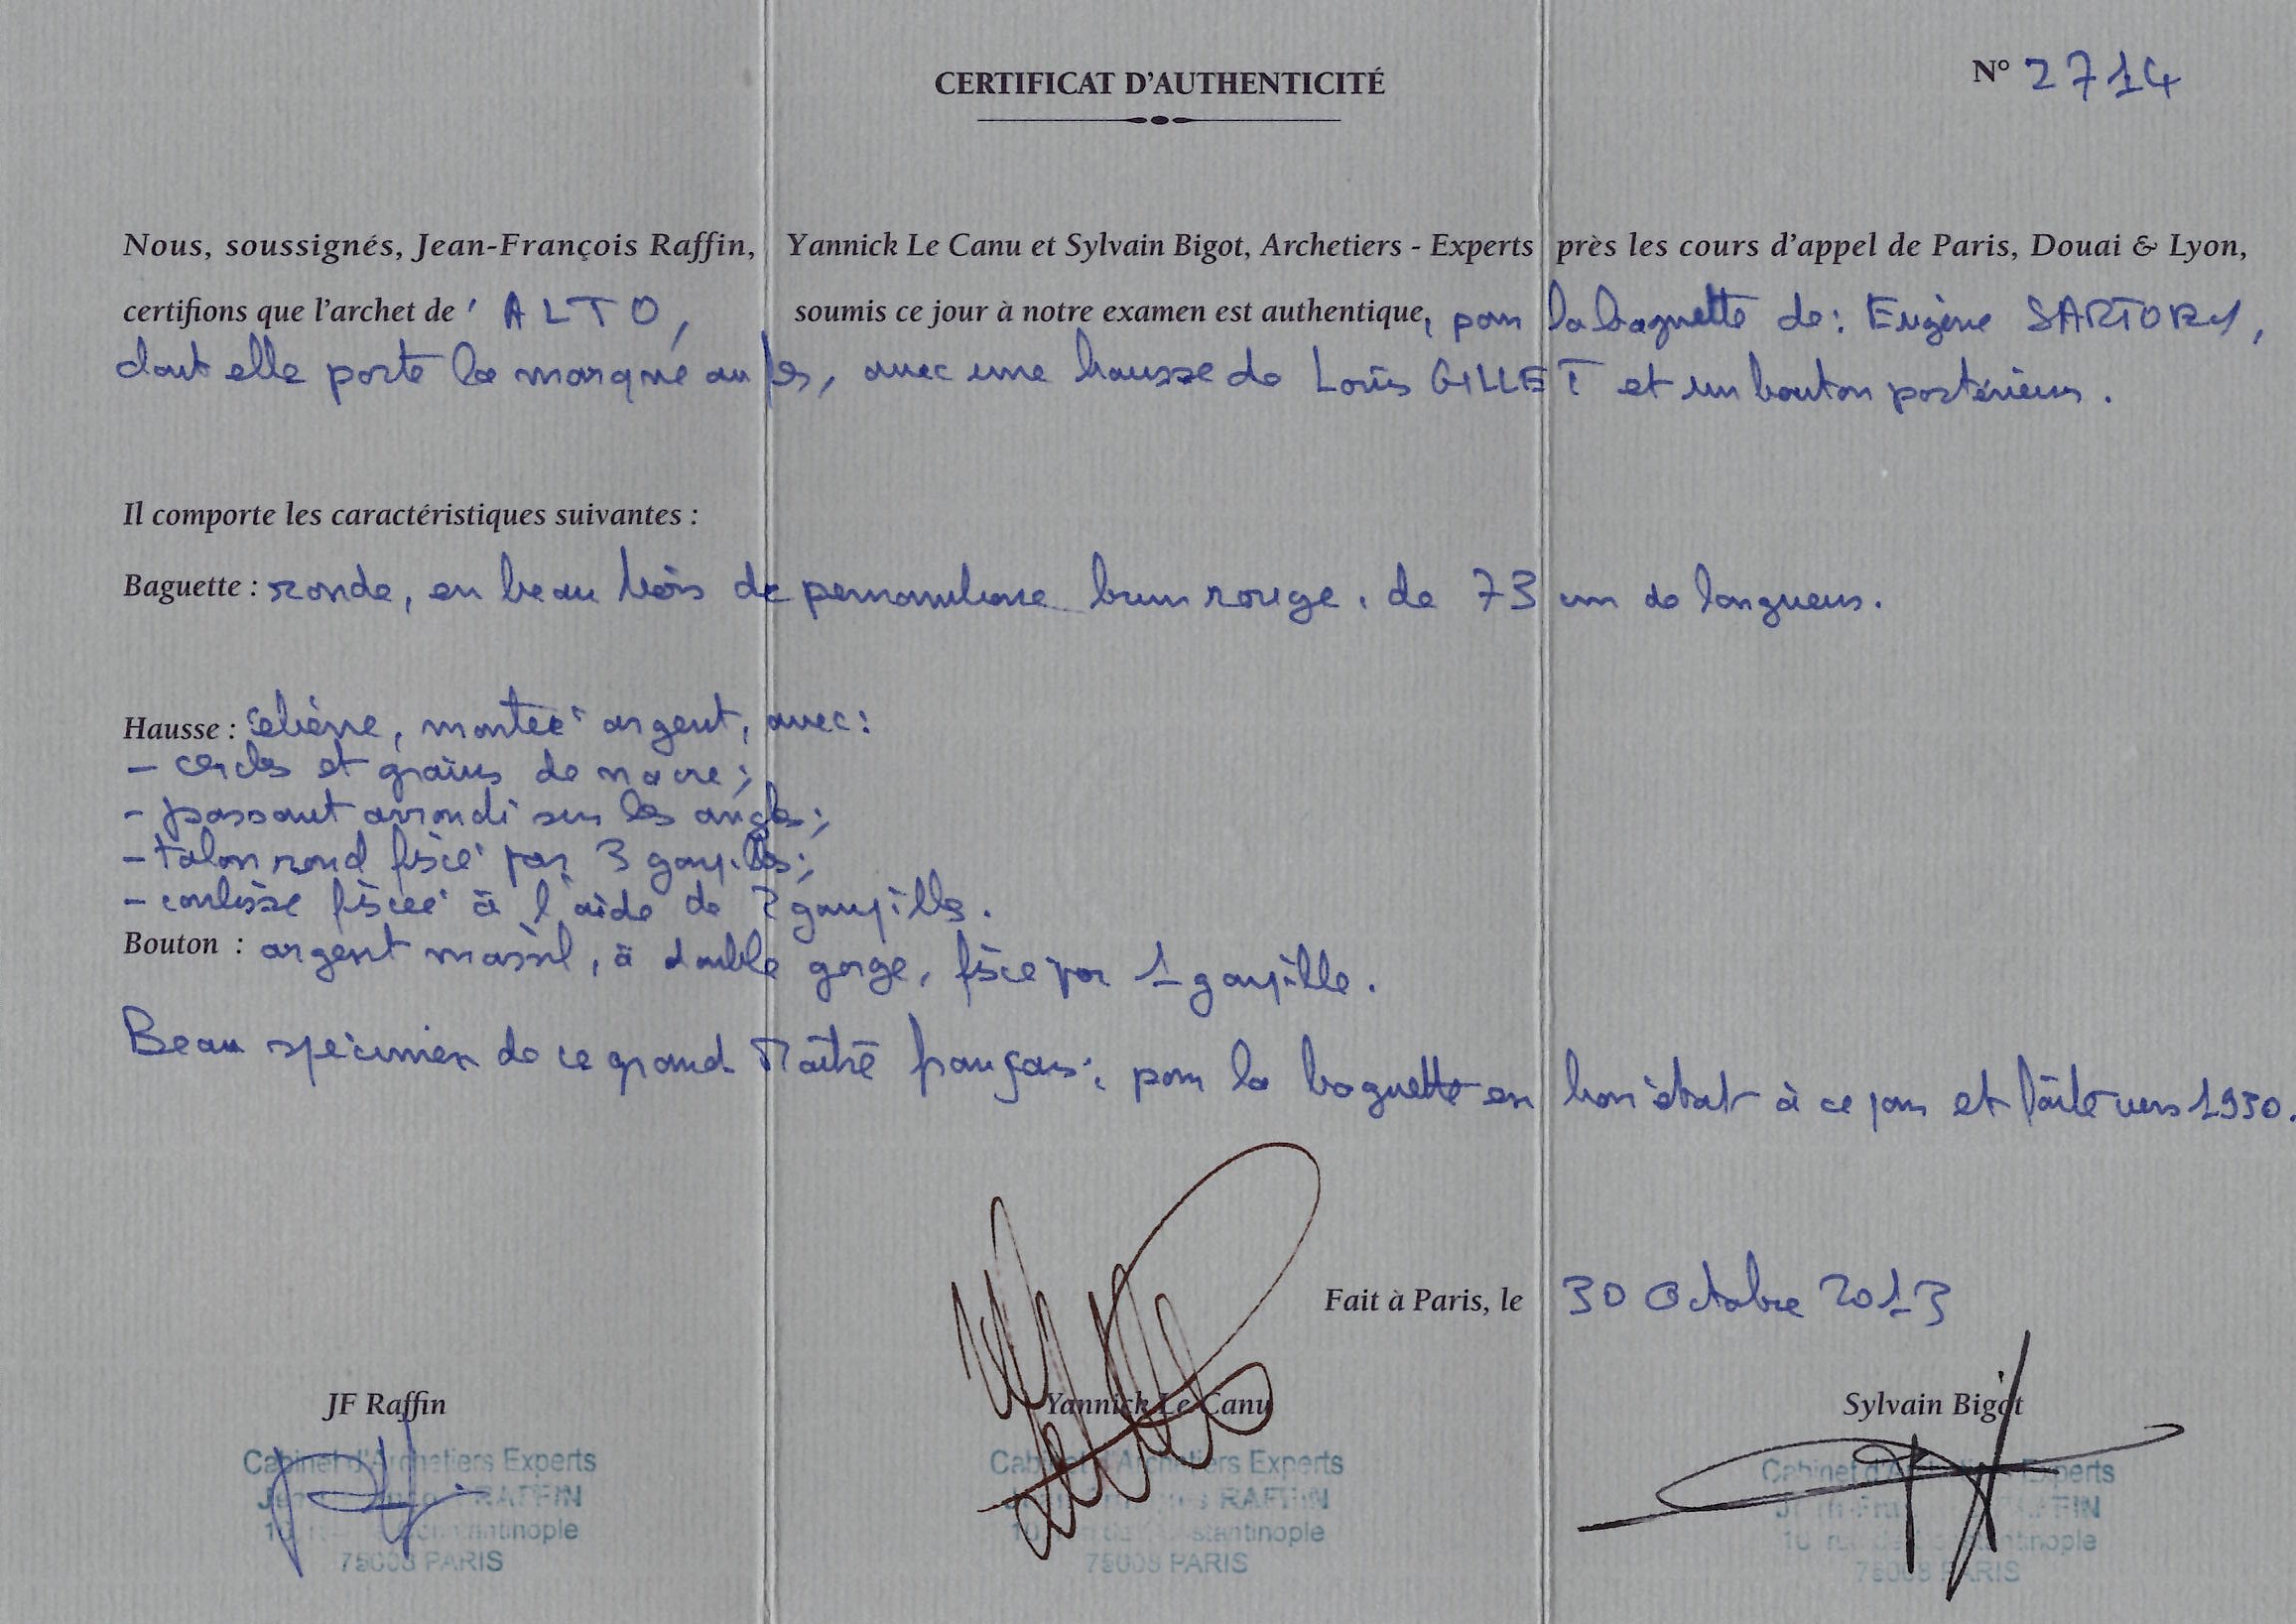 CERTIFICAT D'AUTHENTICITÉ
N° 2714
Nous, soussignés, Jean-François Raffin, Yannick Le Canu et Sylvain Bigot, Archetiers - Experts près les cours d'appel de Paris, Douai & Lyon,
certifions que l'archet de ' ALTO, soumis ce jour à notre examen est authentique, pour la baguette de : Eugène SARTORY,
dont elle porte la marque au fer, avec une hausse de Louis GILLET et un bouton postérieur.
Il comporte les caractéristiques suivantes :
Baguette : ronde, en beau bois de pernambouc brun rouge, de 73 cm de longueur.
Hausse : ébène, montée argent, avec :
- cercles et grains de nacre ;
- passant arrondi sur les angles ;
- talon rond fixé par 3 goupilles ;
- coulisse fixée à l'aide de 2 goupilles.
Bouton : argent massif, à double gorge, fixé par 1 goupille.
Beau spécimen de ce grand Maître français, pour la baguette en bon état à ce jour et faite vers 1930.
Fait à Paris, le 30 Octobre 2013
JF Raffin Yannick Le Canu Sylvain Bigot
Cabinet d'Archetiers Experts Cabinet d'Archetiers Experts Cabinet d'Archetiers Experts
RAFFIN RAFFIN RAFFIN
75008 PARIS 75008 PARIS 75008 PARIS